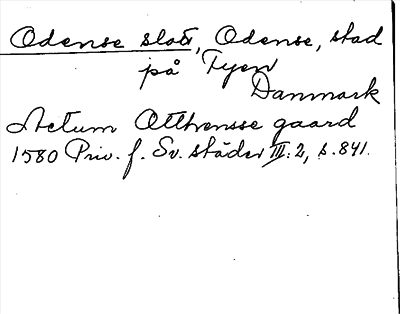 Odense slott, Odense, stad
på Fyen
Danmark
Actum Otthensse gaard
1580 Priv. f. Sv. städer III:2, s. 841.